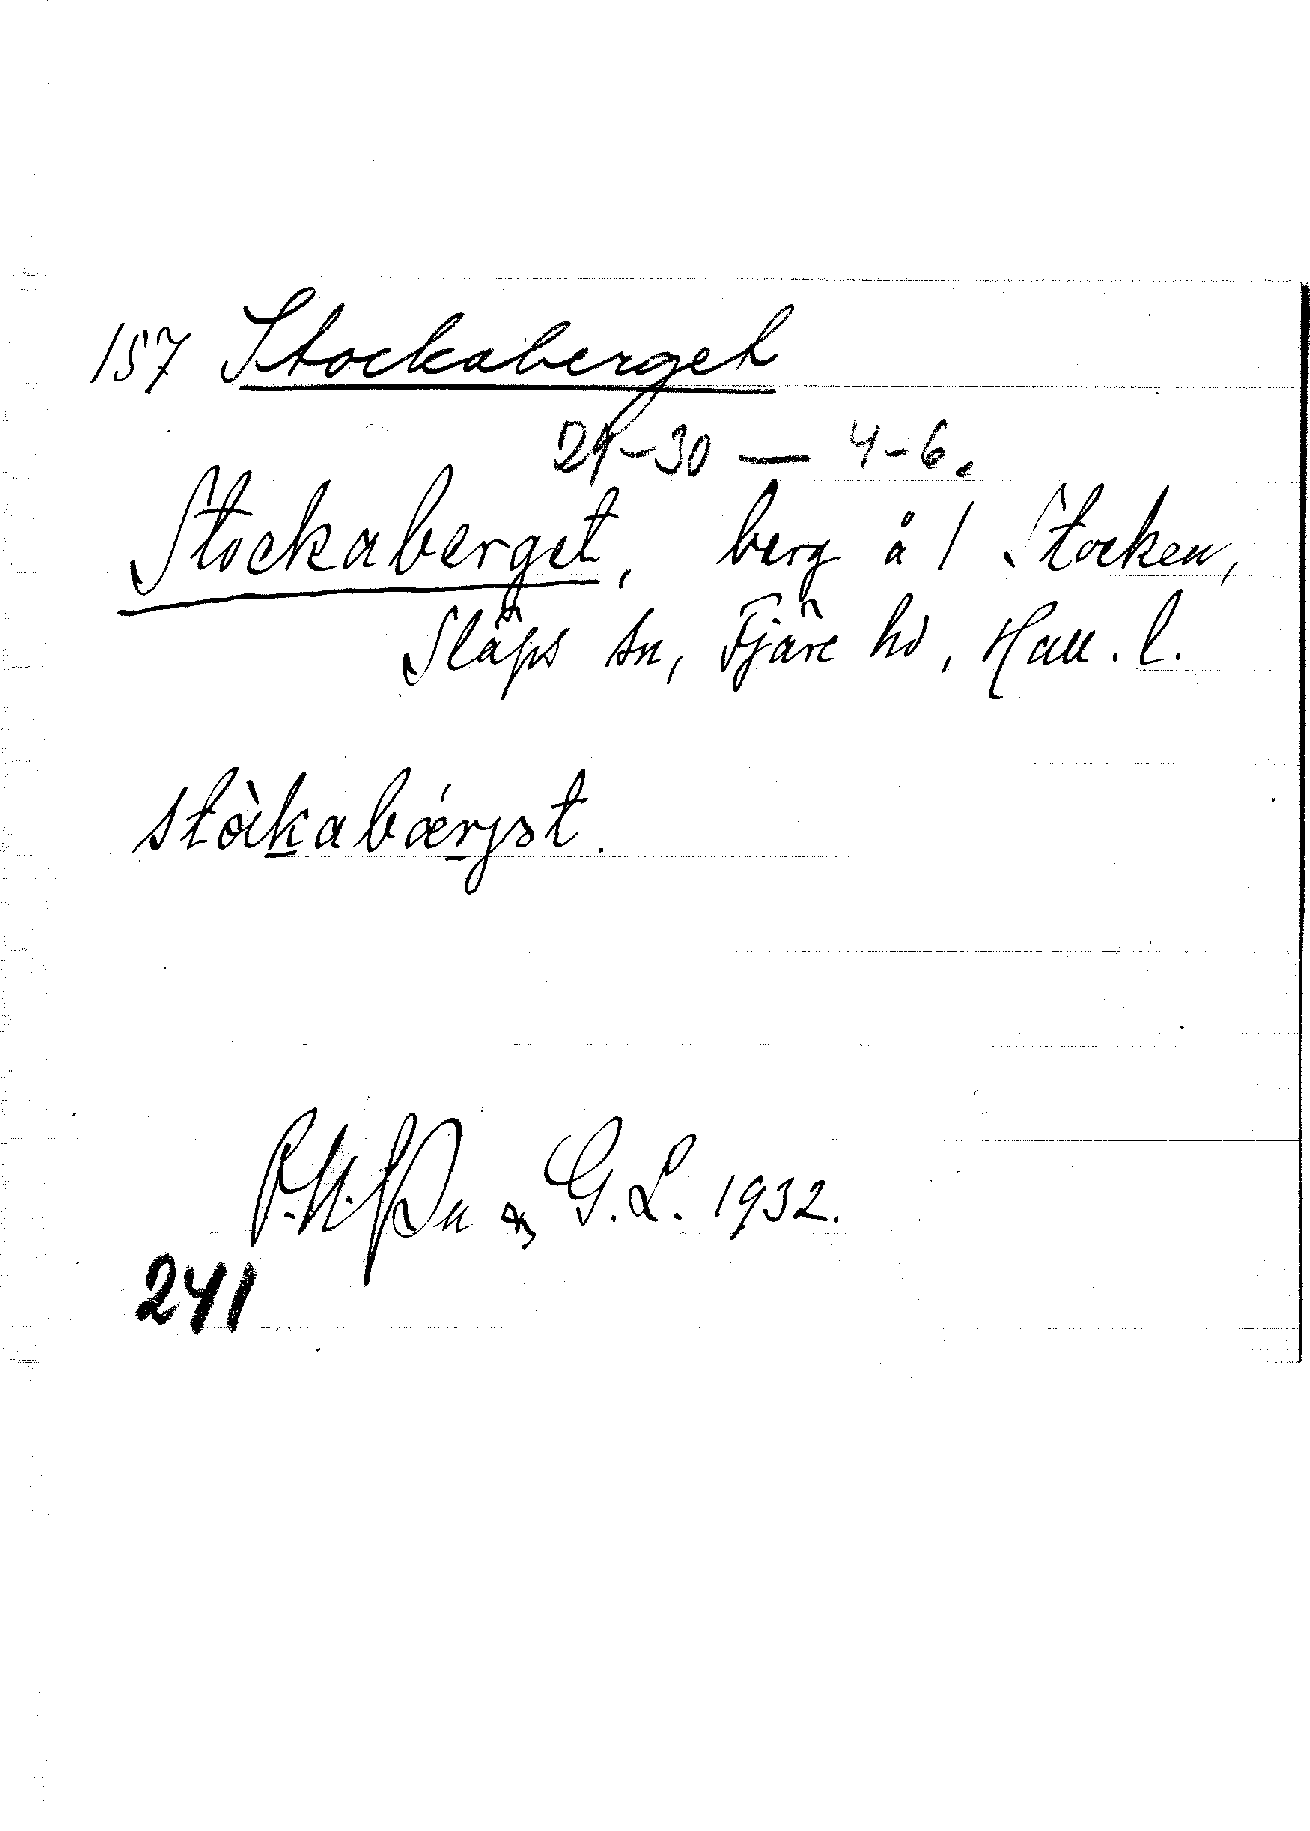 157 Stockaberget
29-30 — 4-6.
Stockaberget, berg å 1 Stocken,
Släps sn, Fjäre hd, Hall. l.
stòkabǽrjət.
& G. L. 1932.
241